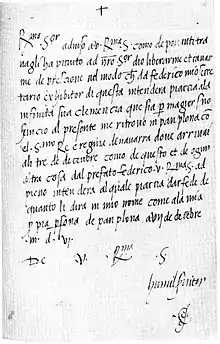 +
R.mo Sor
admiss a v. R.ma S. como depoi inti tra
nagli ha piauto ad nro sor dio liberarme et cavar
me de presone nel modo che da federico mio secre
tario exhibitor di questa intendera piacciala
infinita sua clemencia que sia per magior suo
servicio al presente me ritrovo in pamplona co
el S.mo Re e regina de navarra dove arrivai
alli tre de decembre como de questo et de ogni
altra cosa dal prefato federico v. R.ma S. ad
pieno intendera al quale piacia dar fede de
quanto li dira in mio nome como ala mia
propria persona de pamplona a vii de decebre
m d vi
De V. R.ma S.
humil servitor